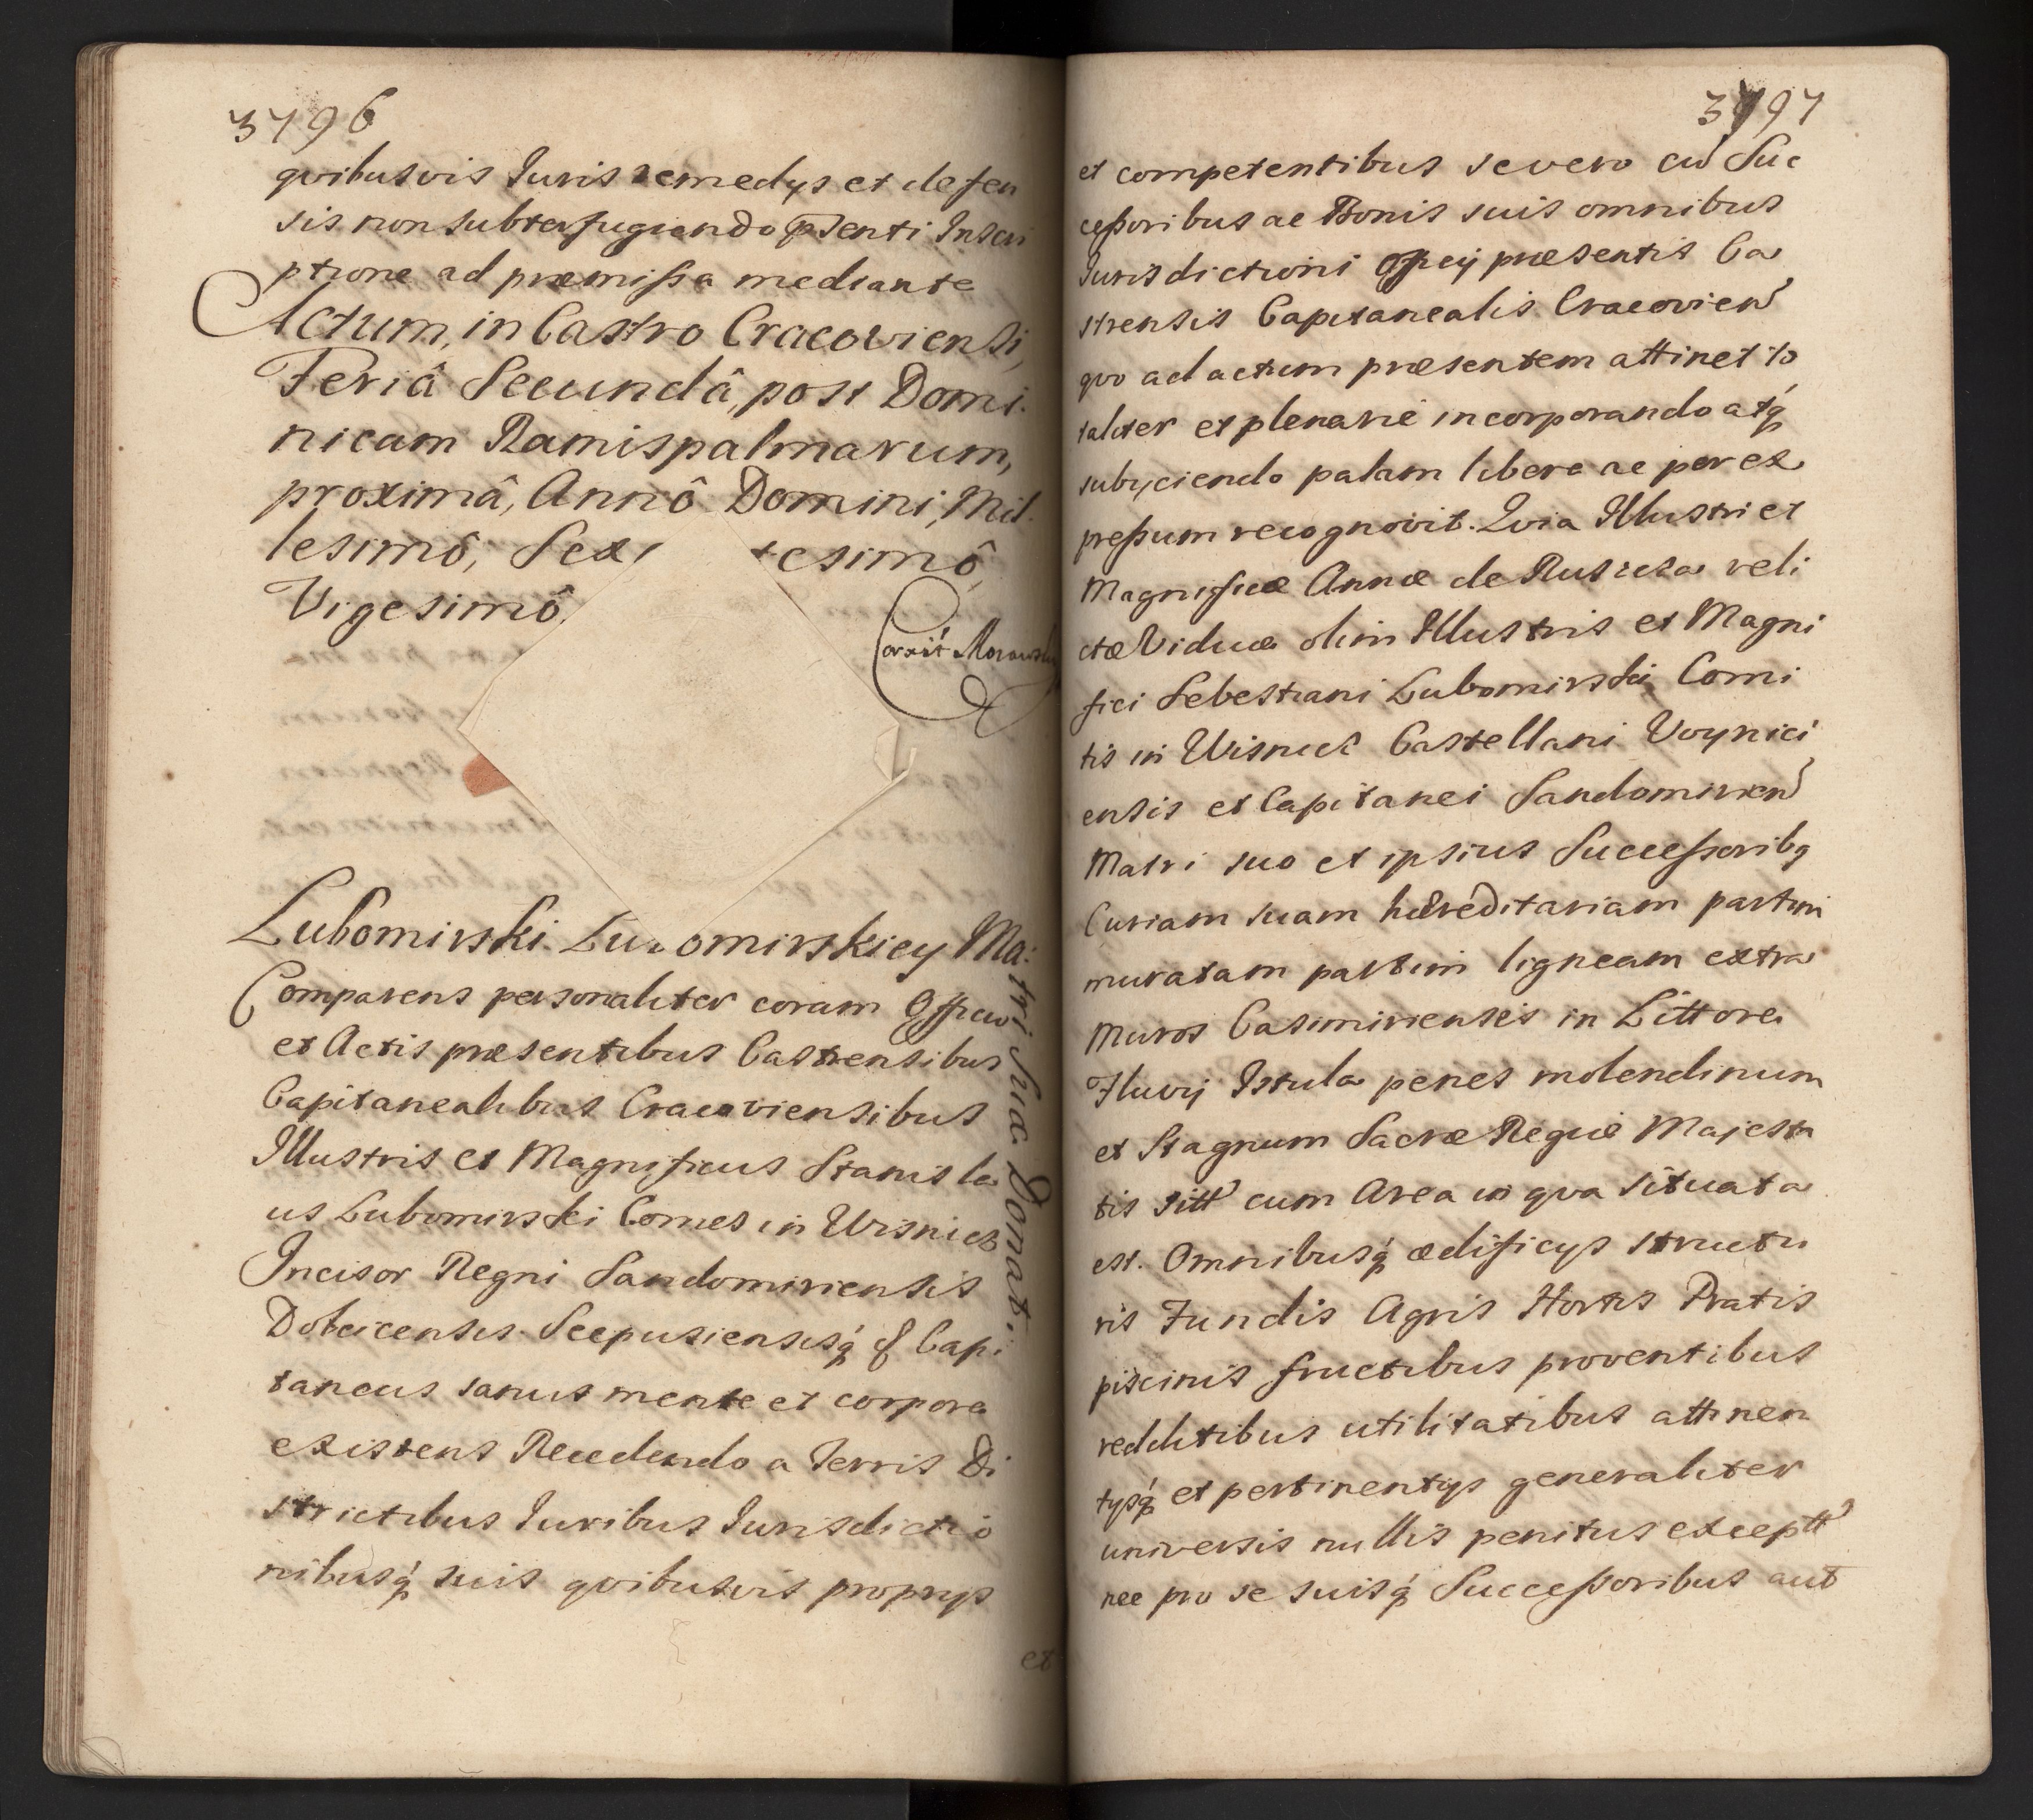 3796
quibusvis Iuris remedys et defen
sis non subterfugiendo pśenti Inscri
ptione ad præmissa mediante
Actum, in Castro Cracoviensi,
Feriâ Secundâ, post Domi-
nicam Ramispalmarum,
proximâ, Annô Domini, Mil-
lesimô, Sex tesimô,
Vigesimô.
Correxit
Lubomirski Lubomirskiey Ma:
tri Suæ Donat:
Comparens personaliter coram Officio
et Actis præsentibus Castrensibus
Capitanealibus Cracoviensibus
Illustris et Magnificus Stanisla
us Lubomirski Comes in Wisnicz
Incisor Regni Sandomiriensis
Dobcicensis Scepusiensisq́ & Capi
taneus sanus mente et corpore
existens Recedendo a Terris Di
strictibus Iuribus Iurisdictio
nibusq́ suis quibusvis proprys
et
3797
et competentibus se vero cū Suc
cessoribus ac Bonis suis omnibus
Iurisdictioni Officij præsentis Ca
strensis Capitanealis Cracovien̄
quo ad actum præsentem attinet to
taliter et plenarie incorporando atq́
subyciendo palam libere ac per ex
pressum recognovit. Quia Illustri et
Magnificæ Annæ de Ruszcza reli
ctæ Viduæ olim Illustris et Magni
fici Sebestiani Lubomirski Comi
tis in Wisnicz Castellani Voynici
ensis et Capitanei Sandomirien̄
Matri suo et ipsius Successoribq
Curiam suam hæreditariam partim
muratam partim ligneam extra
Muros Casimirienses in Littore
Fluvij Istula penes molendinum
et Stagnum Sacræ Regiæ Majesta
tis sitt̄ cum Area in qua situata
est. Omnibusq́ ædificys structu
ris Fundis Agris Hortis Pratis
piscinis fructibus proventibus
redditibus utilitatibus attinen
tysq́ et pertinentys generaliter
universis nullis penitus exceptt̄
nec pro se suisq́ Successoribus aut